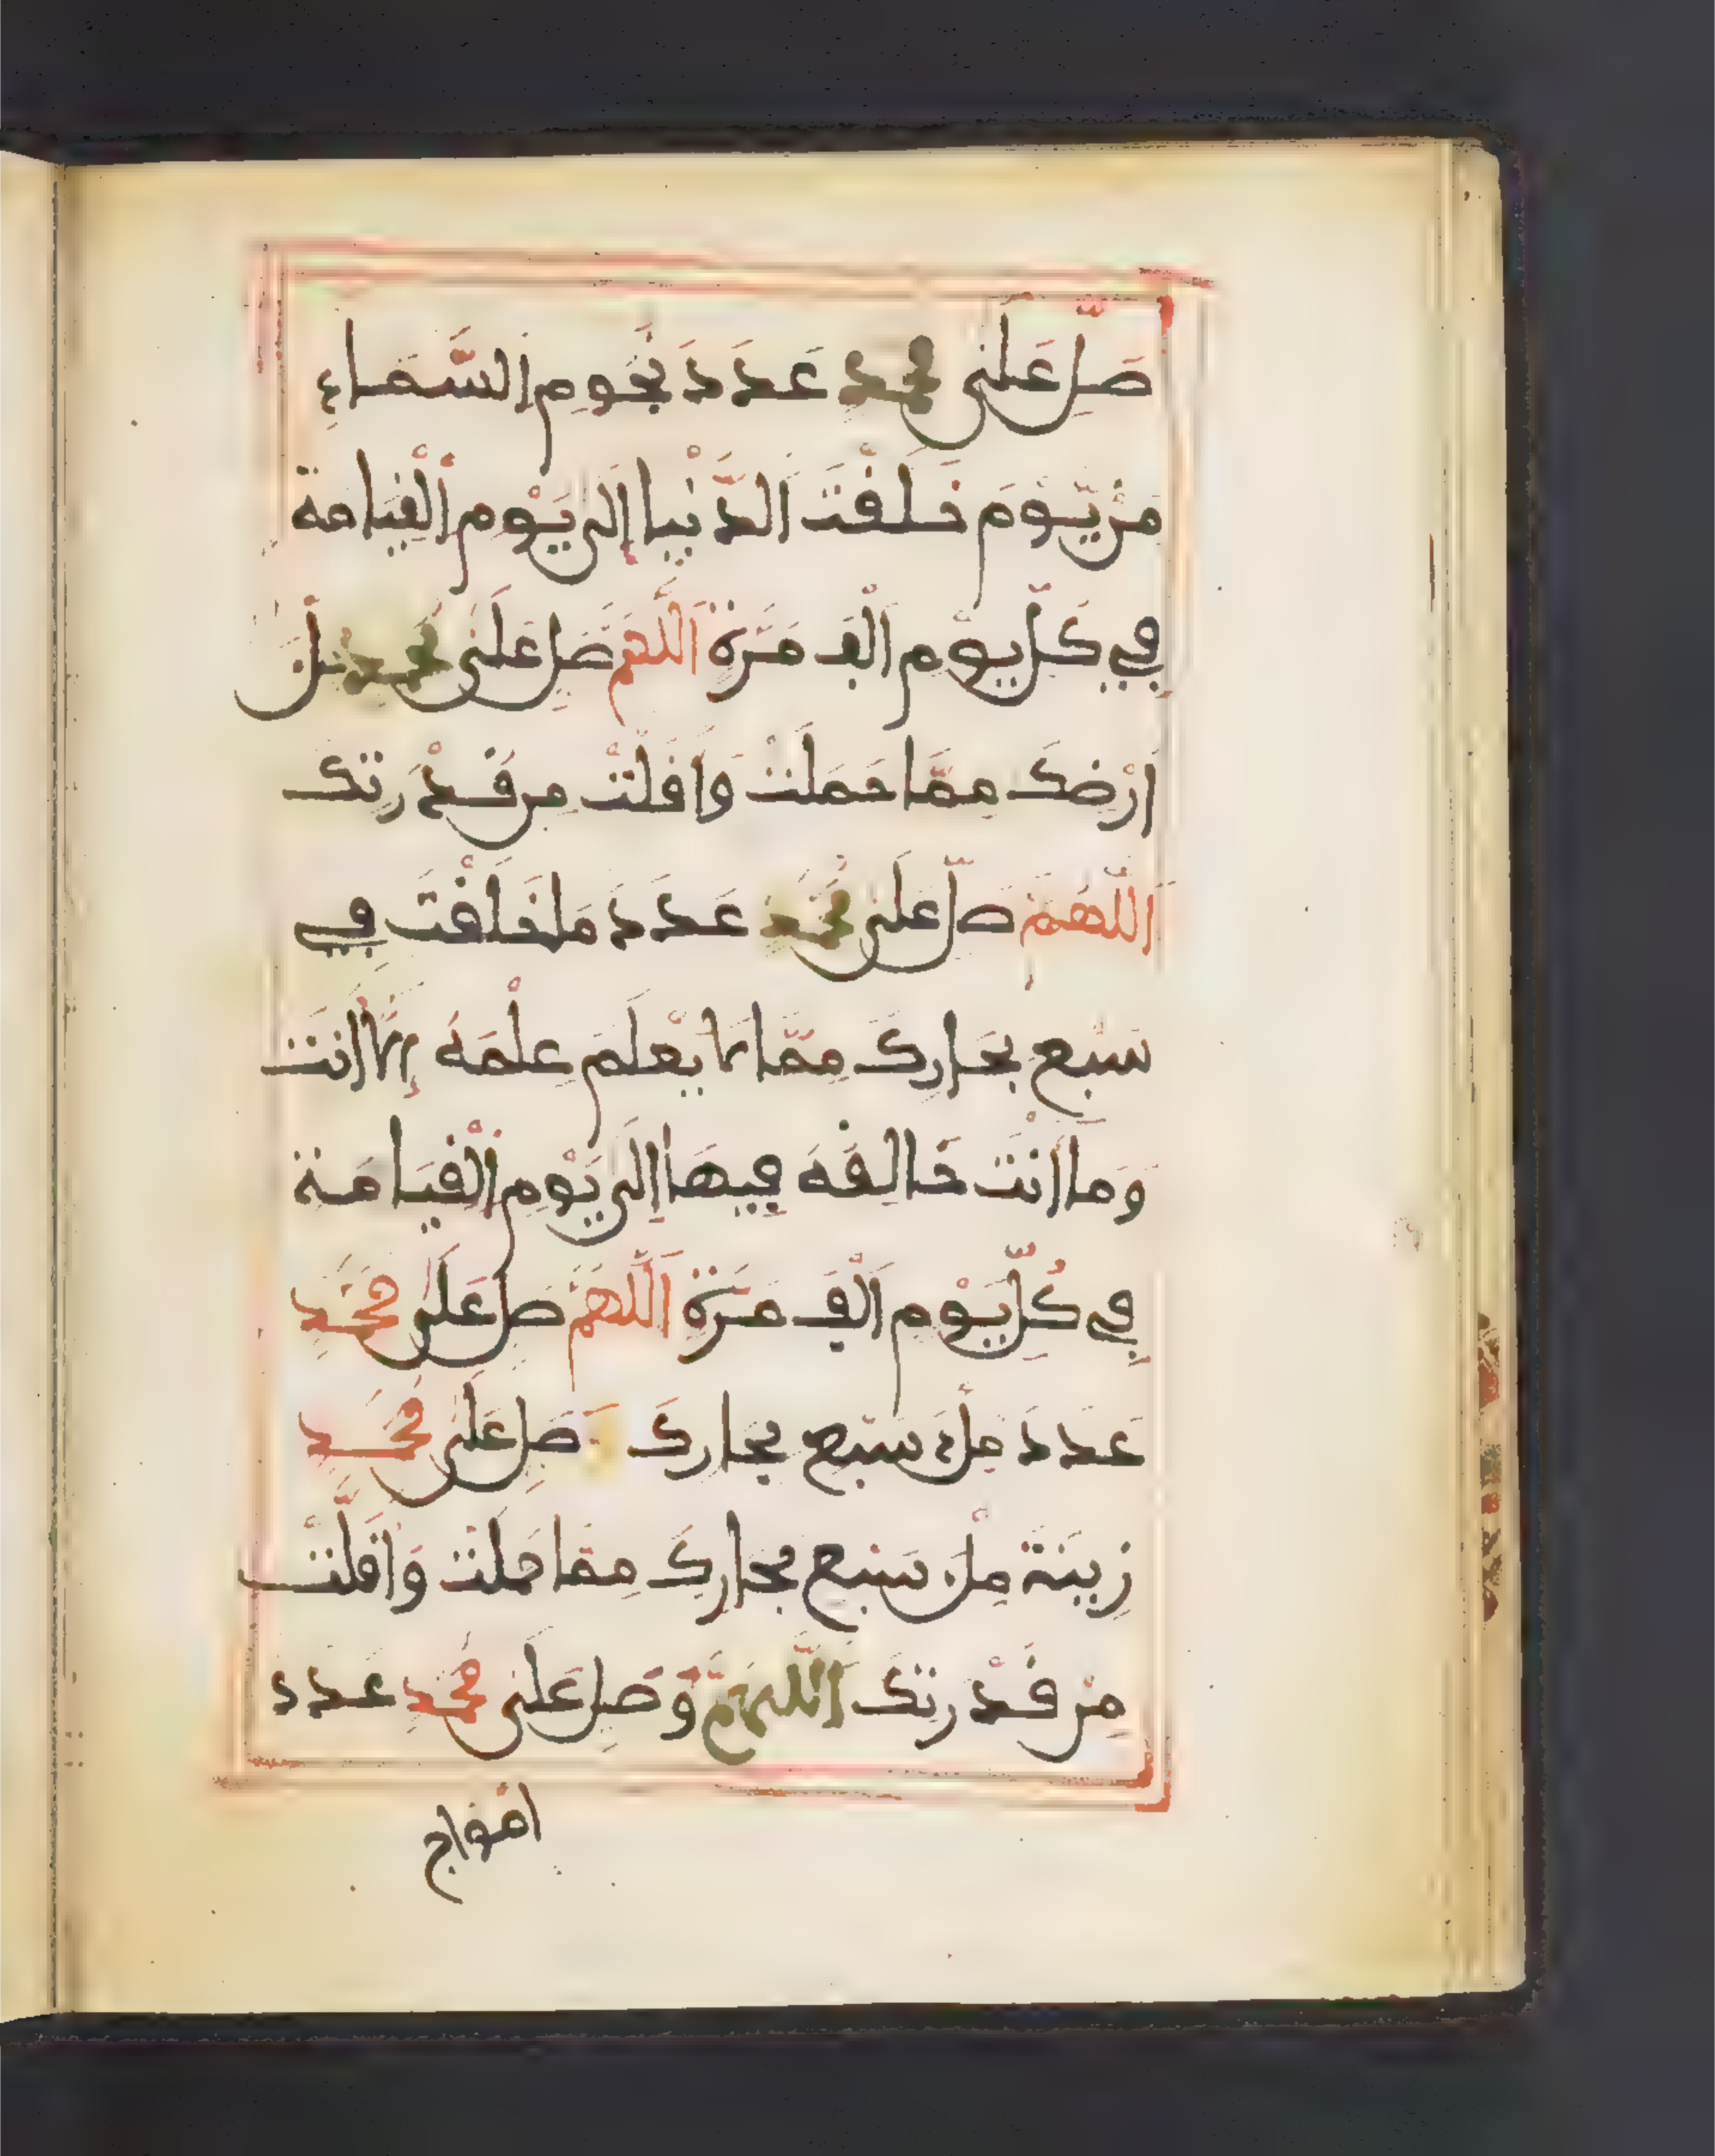 صَلِّ عَلَى مُحَمَّدٍ عَدَدَ نُجُومِ السَّمَاءِ
مِنْ يَّوْمِ خَلَقْتَ الدُّنْيَا إِلَى يَوْمِ الْقِيَامَة
فِي كُلِّ يَوْمٍ أَلْفَ مَرَّةٍ اَللَّهُمَّ صَلِّ عَلَى مُحَمَّدٍ مِلْءَ
أَرْضِكَ مِمَّا حَمَلَتْ وَأَقَلَّتْ مِن قُدْرَتِكَ
اَللَّهُمَّ صَلِّ عَلَى مُحَمَّدٍ عَدَدَ مَا خَلَقْتَ فِي
سَبْعِ بِحَارِكَ مِمَّا لَا يَعْلَمُ عِلْمَهُ إِلَّا أَنتَ
وَمَا أَنْتَ خَالِقُهُ فِيهَا إِلَى يَوْمِ الْقِيَامَةِ
فِي كُلِّ يَوْمٍ أَلْفَ مَرَّةٍ اَللَّهُمَّ صَلِّ عَلَى مُحَمَّدٍ
عَدَدَ مِلْءِ سَبْعِ بِحَارِكَ صَلِّ عَلَى مُحَمَّدٍ
زِينَةَ مِلْءِ سَبْعِ بِحَارِكَ مِمَّا حَمَلَتْ وَأَقَلَّتْ
مِنْ قُدْرَتِكَ اَللَّهُمَّ وَصَلِّ عَلَى مُحَمَّدٍ عَدَدَ
أَمْوَاجِ